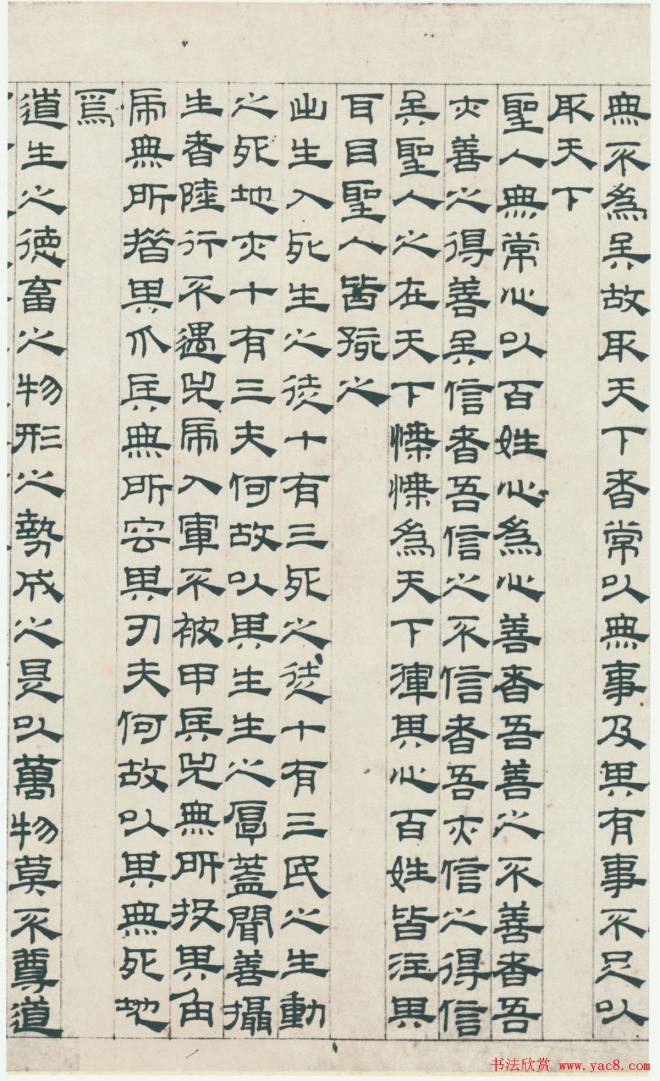 無不為矣故取天下者常以無事及其有事不足以
取天下
聖人無常心以百姓心為心善者吾善之不善者吾
亦善之得善矣信者吾信之不信者吾亦信之得信
矣聖人之在天下惵惵為天下渾其心百姓皆注其
耳目聖人皆孩之
出生入死生之徒十有三死之徒十有三民之生動
之死地亦十有三夫何故以其生生之厚蓋聞善攝
生者陸行不遇兕虎入軍不被甲兵兕無所投其角
虎無所措其爪兵無所容其刃夫何故以其無死地
焉
道生之德畜之物形之勢成之是以萬物莫不尊道
书法欣赏 www.yac8.com